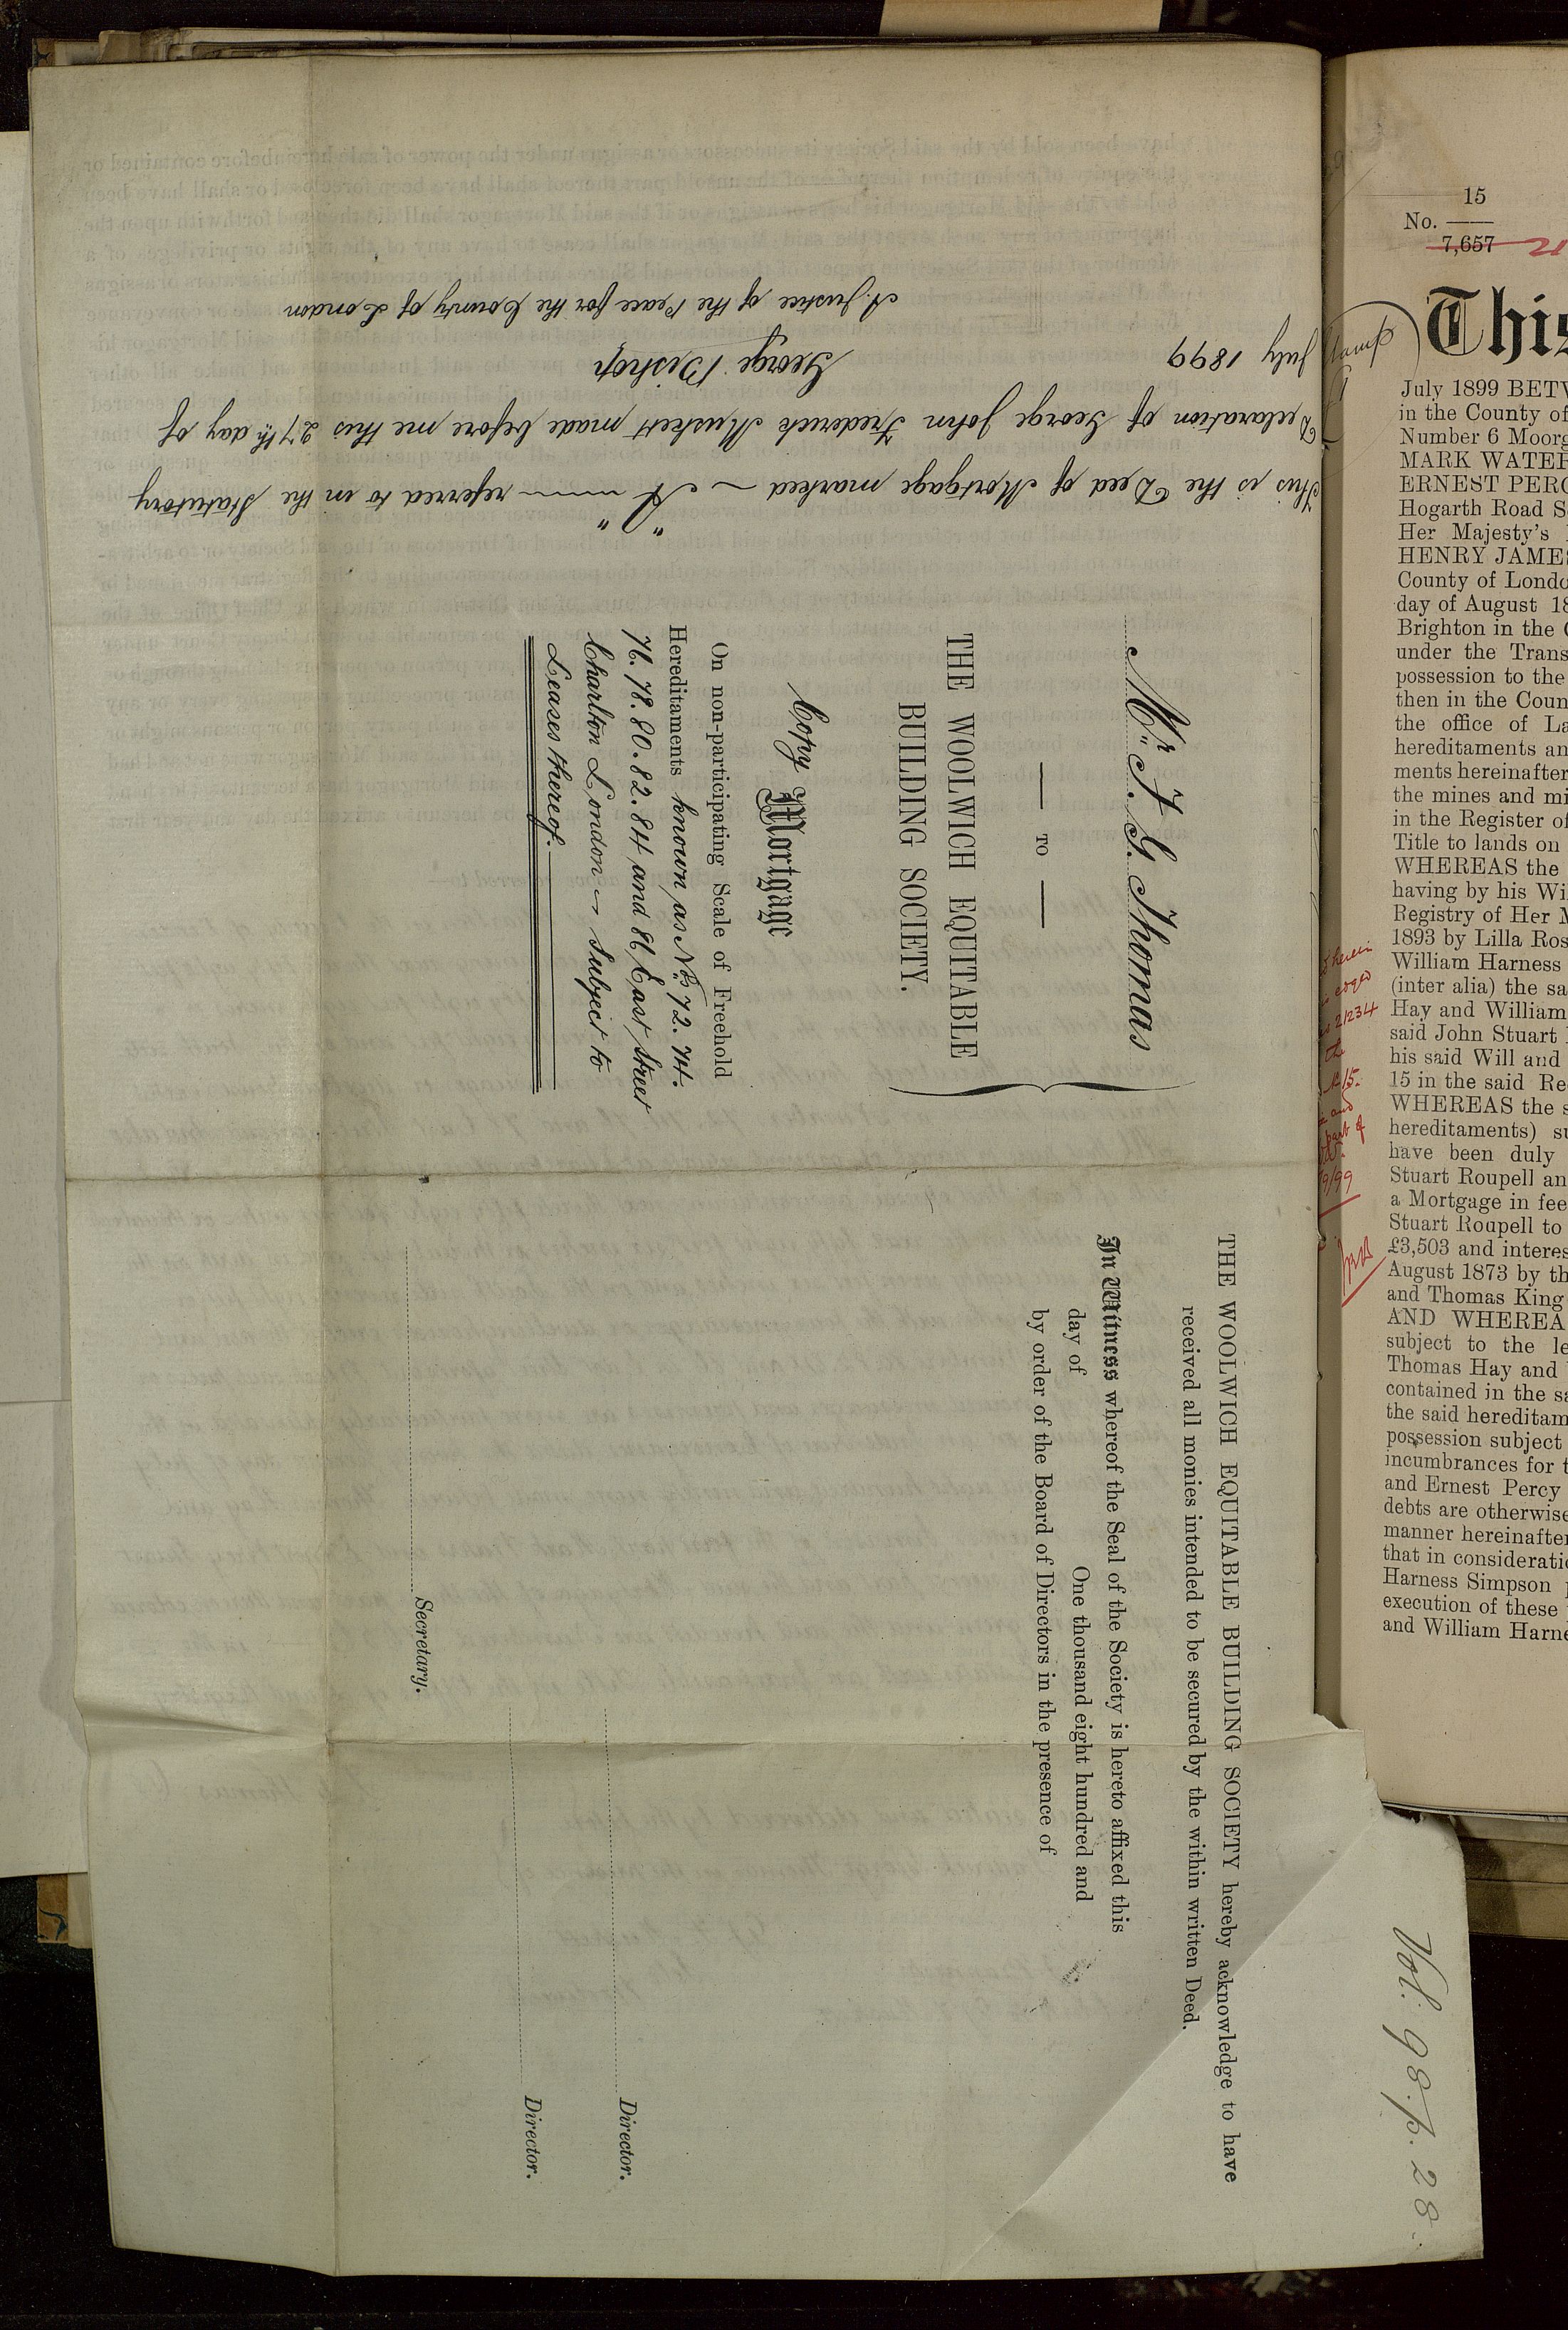 This is the Deed of Mortgage marked "A" referred to in the Statutory
Declaration of George John Frederick Muskett made before me this 27th day of
July 1899
George Bishop
A Justice of the Peace for the County of London
Mr. F. G. Thomas
TO
THE WOOLWICH EQUITABLE
BUILDING SOCIETY.
Copy Mortgage
On non-participating Scale of Freehold
Hereditaments known as Nos 72. 74.
76. 78. 80. 82. 84 and 86 East Street
Charlton London – subject to
Leases thereof.
THE WOOLWICH EQUITABLE BUILDING SOCIETY hereby acknowledge to have
received all monies intended to be secured by the within written Deed.
In Witness whereof the Seal of the Society is hereto affixed this
day of One thousand eight hundred and
by order of the Board of Directors in the presence of
Director.
Director.
Secretary.
Vol. 98. p. 28.
15
No.
7,657
This
July 1899 BETW
in the County of
Number 6 Moorg
MARK WATER
ERNEST PERC
Hogarth Road S
Her Majesty's
HENRY JAMES
County of Londo
day of August 18
Brighton in the C
under the Trans
possession to the
then in the Coun
the office of La
hereditaments an
ments hereinafter
the mines and mi
in the Register of
Title to lands on
WHEREAS the
having by his Wi
Registry of Her M
1893 by Lilla Ros
William Harness
(inter alia) the sa
Hay and William
said John Stuart
his said Will and
15 in the said Re
WHEREAS the s
hereditaments) su
have been duly
Stuart Roupell an
a Mortgage in fee
Stuart Roupell to
£3,503 and interes
August 1873 by th
and Thomas King
AND WHEREA
subject to the le
Thomas Hay and
contained in the sa
the said hereditam
possession subject
incumbrances for t
and Ernest Percy
debts are otherwise
manner hereinafter
that in consideratio
Harness Simpson p
execution of these
and William Harne